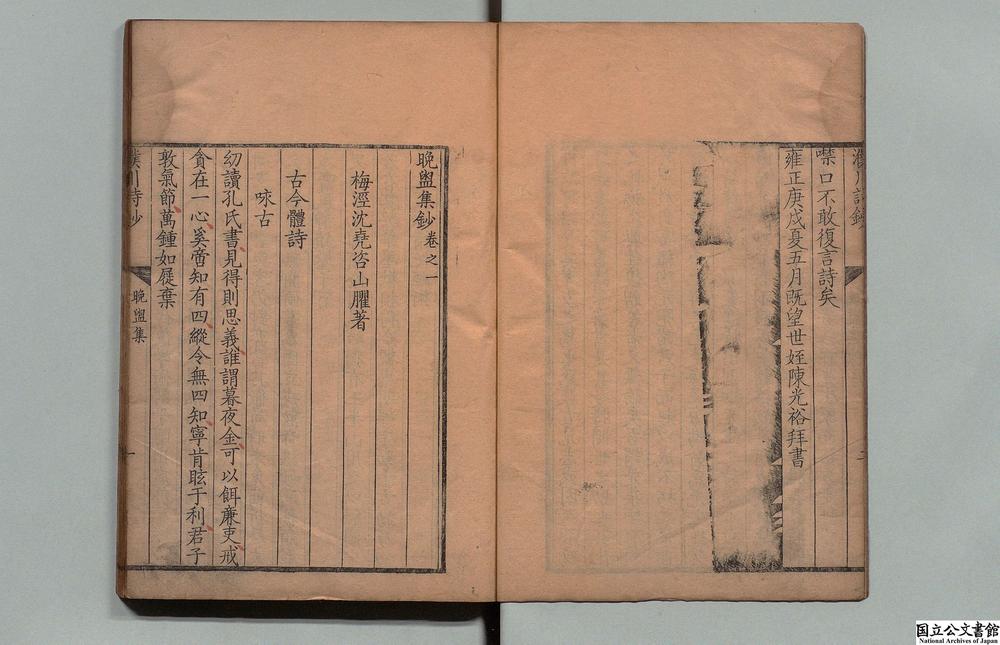 濮川詩鈔
噤口不敢復言詩矣
雍正庚戌夏五月既望世姪陳光裕拜書
二
晚盥集鈔卷之一
梅涇沈堯咨山臞著
古今體詩
咏古
幼讀孔氏書見得則思義誰謂暮夜金可以餌廉吏戒
貪在一心奚啻知有四縱令無四知寧肯眩于利君子
敦氣節萬鍾如屣棄
濮川詩鈔
晚盥集
一
国立公文書館
National Archives of Japan